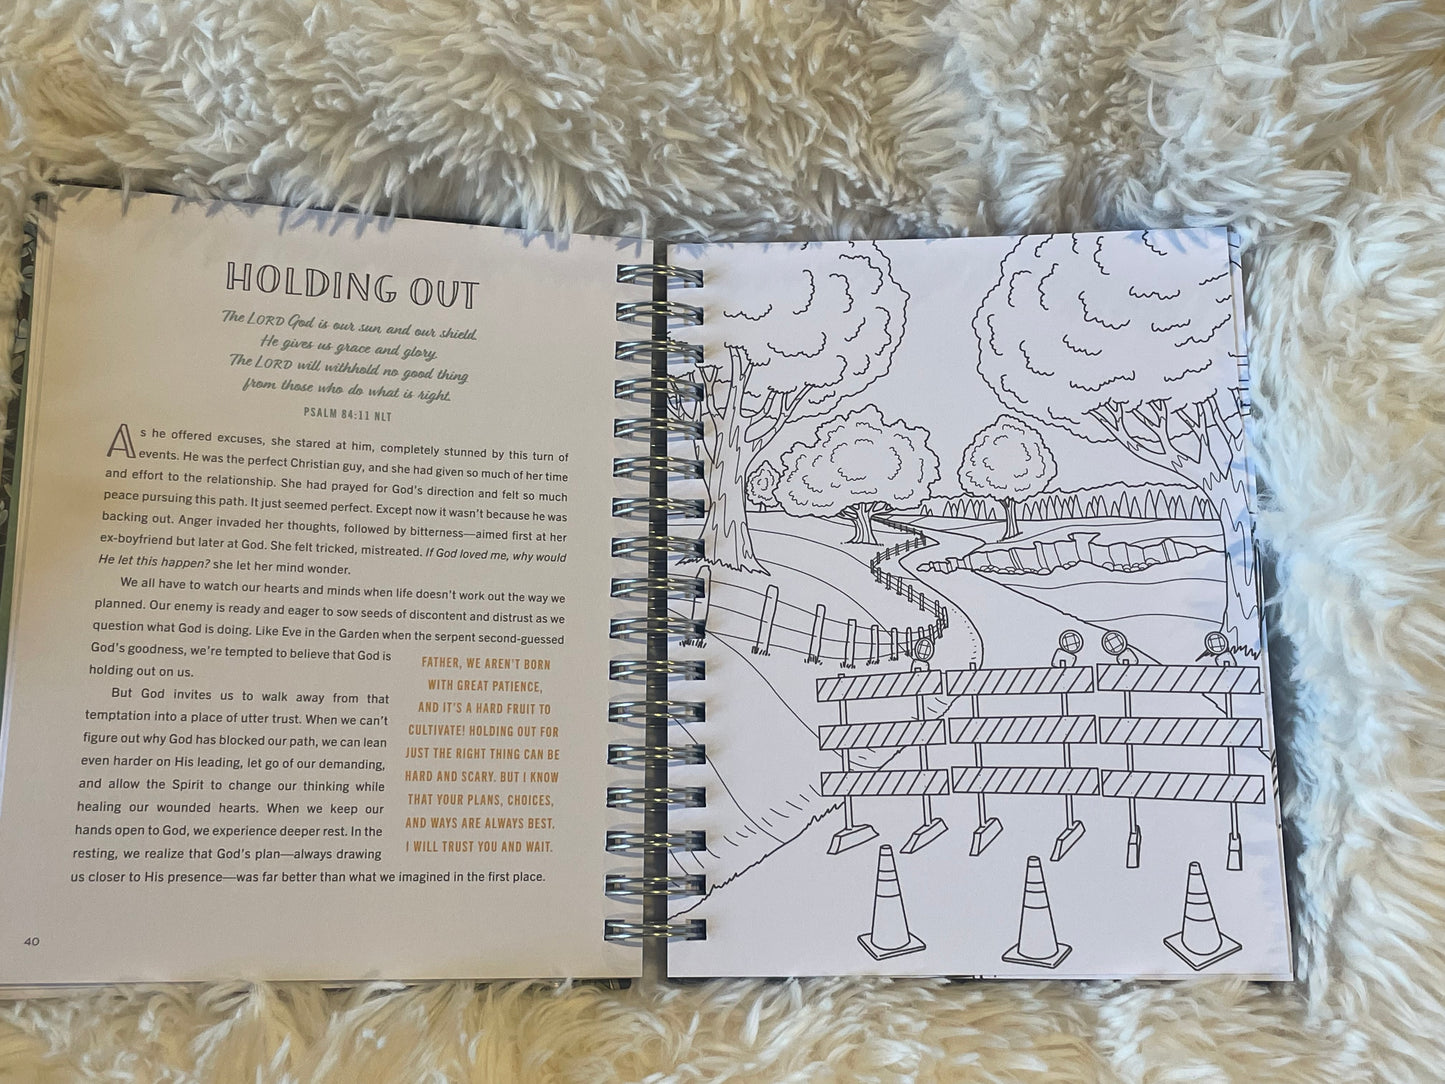 HOLDING OUT
The LORD God is our sun and our shield.
He gives us grace and glory.
The LORD will withhold no good thing
from those who do what is right.
PSALM 84:11 NLT
As he offered excuses, she stared at him, completely stunned by this turn of
events. He was the perfect Christian guy, and she had given so much of her time
and effort to the relationship. She had prayed for God's direction and felt so much
peace pursuing this path. It just seemed perfect. Except now it wasn't because he was
backing out. Anger invaded her thoughts, followed by bitterness—aimed first at her
ex-boyfriend but later at God. She felt tricked, mistreated. If God loved me, why would
He let this happen? she let her mind wonder.
We all have to watch our hearts and minds when life doesn't work out the way we
planned. Our enemy is ready and eager to sow seeds of discontent and distrust as we
question what God is doing. Like Eve in the Garden when the serpent second-guessed
God's goodness, we're tempted to believe that God is
holding out on us.
But God invites us to walk away from that
temptation into a place of utter trust. When we can't
figure out why God has blocked our path, we can lean
even harder on His leading, let go of our demanding,
and allow the Spirit to change our thinking while
healing our wounded hearts. When we keep our
hands open to God, we experience deeper rest. In the
resting, we realize that God's plan—always drawing
us closer to His presence—was far better than what we imagined in the first place.
FATHER, WE AREN'T BORN
WITH GREAT PATIENCE,
AND IT'S A HARD FRUIT TO
CULTIVATE! HOLDING OUT FOR
JUST THE RIGHT THING CAN BE
HARD AND SCARY. BUT I KNOW
THAT YOUR PLANS, CHOICES,
AND WAYS ARE ALWAYS BEST.
I WILL TRUST YOU AND WAIT.
40